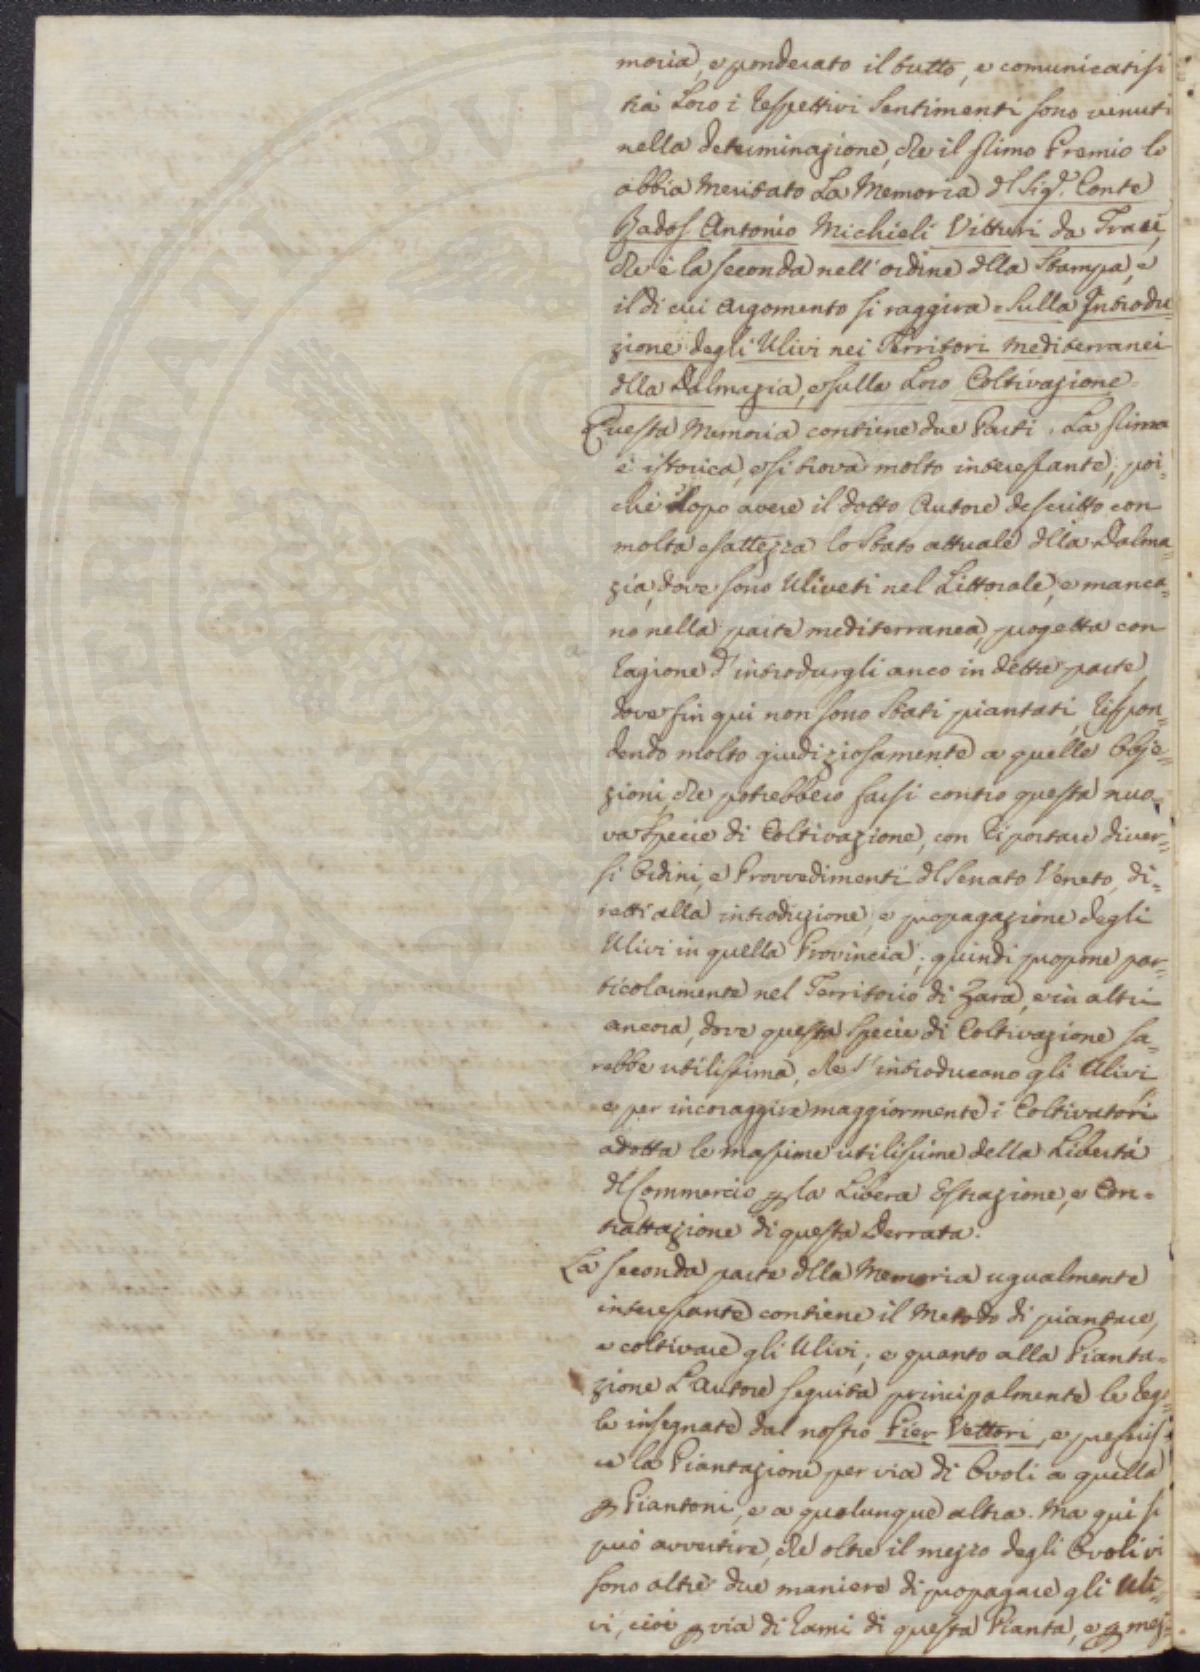 moria, e ponderato il tutto, e comunicatisi
trà Loro i respettivi Sentimenti sono venuti
nella determinazione, che il primo Premio lo
abbia meritato La Memoria del Sigr. Conte
Rados Antonio Michieli Vitturi da Traù,
che è la seconda nell'ordine della Stampa, e
il di cui Argomento si raggira = Sulla Introdu-
zione degli Ulivi nei Territori mediterranei
della Dalmazia, e sulla Loro Coltivazione =
Questa Memoria contiene due Parti. La prima
è istorica, e si trova molto interessante; poi-
chè dopo avere il dotto Autore descritto con
molta esattezza lo Stato attuale della Dalma-
zia, dove sono Uliveti nel Littorale, e manca-
no nella parte mediterranea, progetta con
ragione d'introdurgli anco in detta parte,
dove fin qui non sono Stati piantati, rispon-
dendo molto giudiziosamente a quelle Obje-
zioni, che potrebbero farsi contro questa nuo-
va Specie di Coltivazione, con riportare diver-
si Ordini, e Provvedimenti del Senato Veneto, di-
retti alla introduzione, e propagazione degli
Ulivi in quella Provincia; quindi propone par-
ticolarmente nel Territorio di Zara, e in altri
ancora, dove questa Specie di Coltivazione sa-
rebbe utilissima, che s'introducano gli Ulivi
e per incoraggire maggiormente i Coltivatori
adotta le massime utilissime della Libertà
del Commercio p la Libera Estrazione, e Con-
trattazione di questa Derrata.
La seconda parte della Memoria ugualmente
interessante contiene il Metodo di piantare,
e coltivare gli Ulivi; e quanto alla Pianta-
zione L'Autore seguita principalmente le rego-
le insegnate dal nostro Pier Vettori, e preferis-
ce la Piantazione per via di Ovoli a quella
p Piantoni, e a qualunque altra. Ma qui si
può avvertire, che oltre il mezzo degli Ovoli vi
sono altre due maniere di propagare gli Uli-
vi, cioè p via di rami di questa Pianta, e p mez-